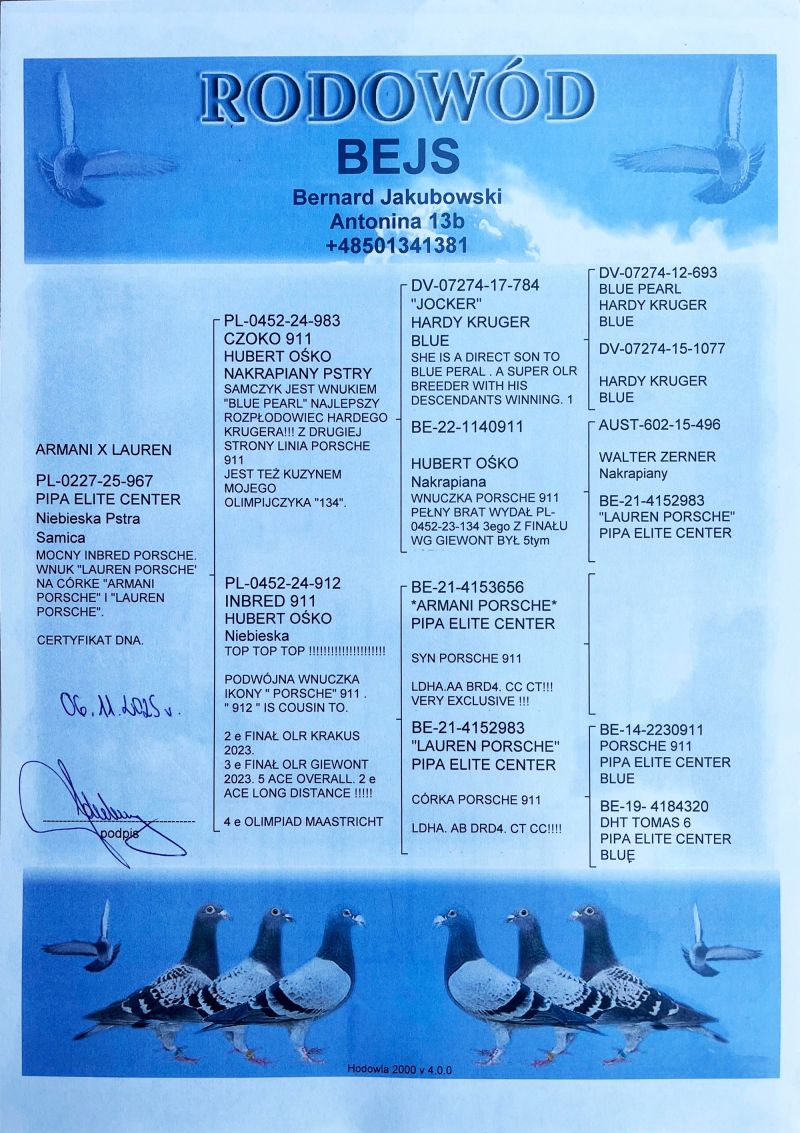 RODOWÓD
BEJS
Bernard Jakubowski
Antonina 13b
+48501341381
ARMANI X LAUREN
PL-0227-25-967
PIPA ELITE CENTER
Niebieska Pstra
Samica
MOCNY INBRED PORSCHE.
WNUK "LAUREN PORSCHE'
NA CÓRKE "ARMANI
PORSCHE" I "LAUREN
PORSCHE".
CERTYFIKAT DNA.
06.11.2025 r.
podpis
PL-0452-24-983
CZOKO 911
HUBERT OŚKO
NAKRAPIANY PSTRY
SAMCZYK JEST WNUKIEM
"BLUE PEARL" NAJLEPSZY
ROZPŁODOWIEC HARDEGO
KRUGERA!!! Z DRUGIEJ
STRONY LINIA PORSCHE
911
JEST TEŻ KUZYNEM
MOJEGO
OLIMPIJCZYKA "134".
PL-0452-24-912
INBRED 911
HUBERT OŚKO
Niebieska
TOP TOP TOP !!!!!!!!!!!!!!!!!!!!!
PODWÓJNA WNUCZKA
IKONY " PORSCHE" 911 .
" 912 " IS COUSIN TO.
2 e FINAŁ OLR KRAKUS
2023.
3 e FINAŁ OLR GIEWONT
2023. 5 ACE OVERALL. 2 e
ACE LONG DISTANCE !!!!!
4 e OLIMPIAD MAASTRICHT
DV-07274-17-784
"JOCKER"
HARDY KRUGER
BLUE
SHE IS A DIRECT SON TO
BLUE PERAL . A SUPER OLR
BREEDER WITH HIS
DESCENDANTS WINNING. 1
BE-22-1140911
HUBERT OŚKO
Nakrapiana
WNUCZKA PORSCHE 911
PEŁNY BRAT WYDAŁ PL-
0452-23-134 3ego Z FINAŁU
WG GIEWONT BYŁ 5tym
BE-21-4153656
*ARMANI PORSCHE*
PIPA ELITE CENTER
SYN PORSCHE 911
LDHA.AA BRD4. CC CT!!!
VERY EXCLUSIVE !!!
BE-21-4152983
"LAUREN PORSCHE"
PIPA ELITE CENTER
CÓRKA PORSCHE 911
LDHA. AB DRD4. CT CC!!!!
DV-07274-12-693
BLUE PEARL
HARDY KRUGER
BLUE
DV-07274-15-1077
HARDY KRUGER
BLUE
AUST-602-15-496
WALTER ZERNER
Nakrapiany
BE-21-4152983
"LAUREN PORSCHE"
PIPA ELITE CENTER
BE-14-2230911
PORSCHE 911
PIPA ELITE CENTER
BLUE
BE-19- 4184320
DHT TOMAS 6
PIPA ELITE CENTER
BLUE
Hodowla 2000 v 4.0.0